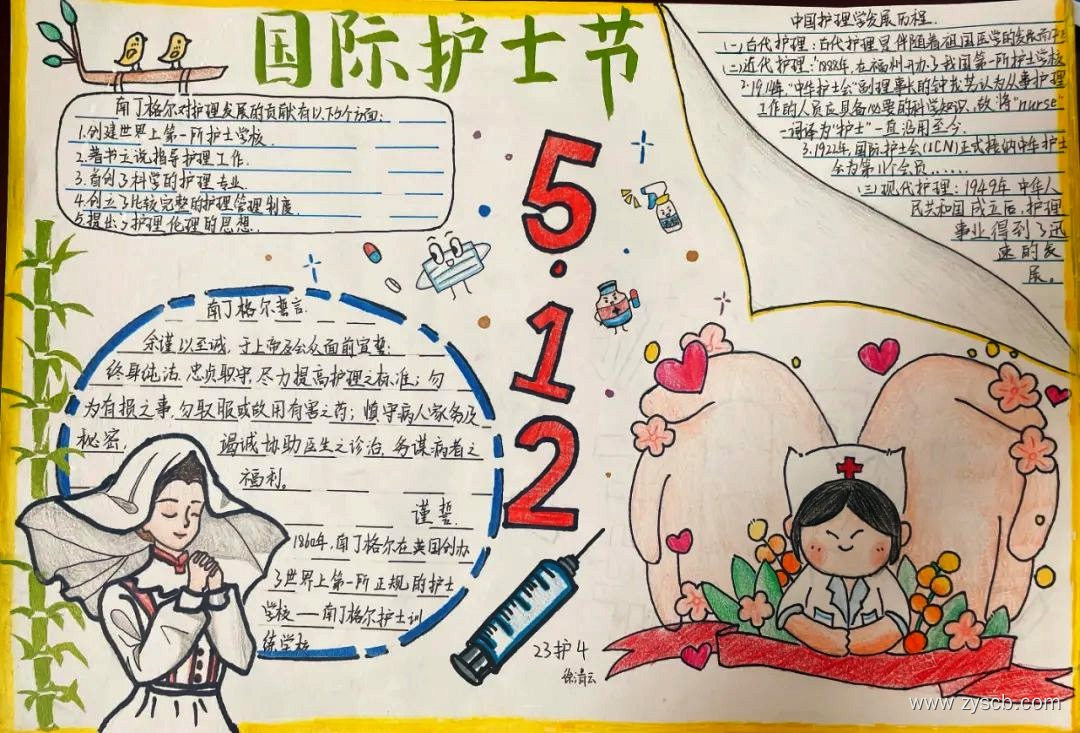 国际护士节
南丁格尔对护理发展的贡献有以下5个方面:
1.创建世界上第一所护士学校.
2.著书立说指导护理工作.
3.首创了科学的护理专业.
4.创立了比较完整的护理管理制度.
5.提出了护理伦理的思想.
5·12
中国护理学发展历程.
(一)古代护理:古代护理是伴随着祖国医学的发展而
(二)近代护理:"1888年,在福州开办了我国第一所护士学校
2.1914年,"中华护士会"副理事长的钟茂芳认为从事护理
工作的人员应具备必要的科学知识,故将"nurse"
一词译为"护士"一直沿用至今.
3.1922年,国际护士会(ICN)正式接纳中华护士
会为第11个会员......
(三)现代护理:1949年 中华人
民共和国成立后,护理
事业得到了迅
速的发
展。
南丁格尔誓言.
余谨以至诚,于上帝及会众面前宣誓:
终身纯洁,忠贞职守,尽力提高护理之标准;勿
为有损之事,勿取服或故用有害之药;慎守病人家务及
秘密, 竭诚协助医生之诊治,务谋病者之
福利。
谨誓.
1860年,南丁格尔在英国创办
了世界上第一所正规的护士
学校——南丁格尔护士训
练学校
23护4
www.zyscb.com